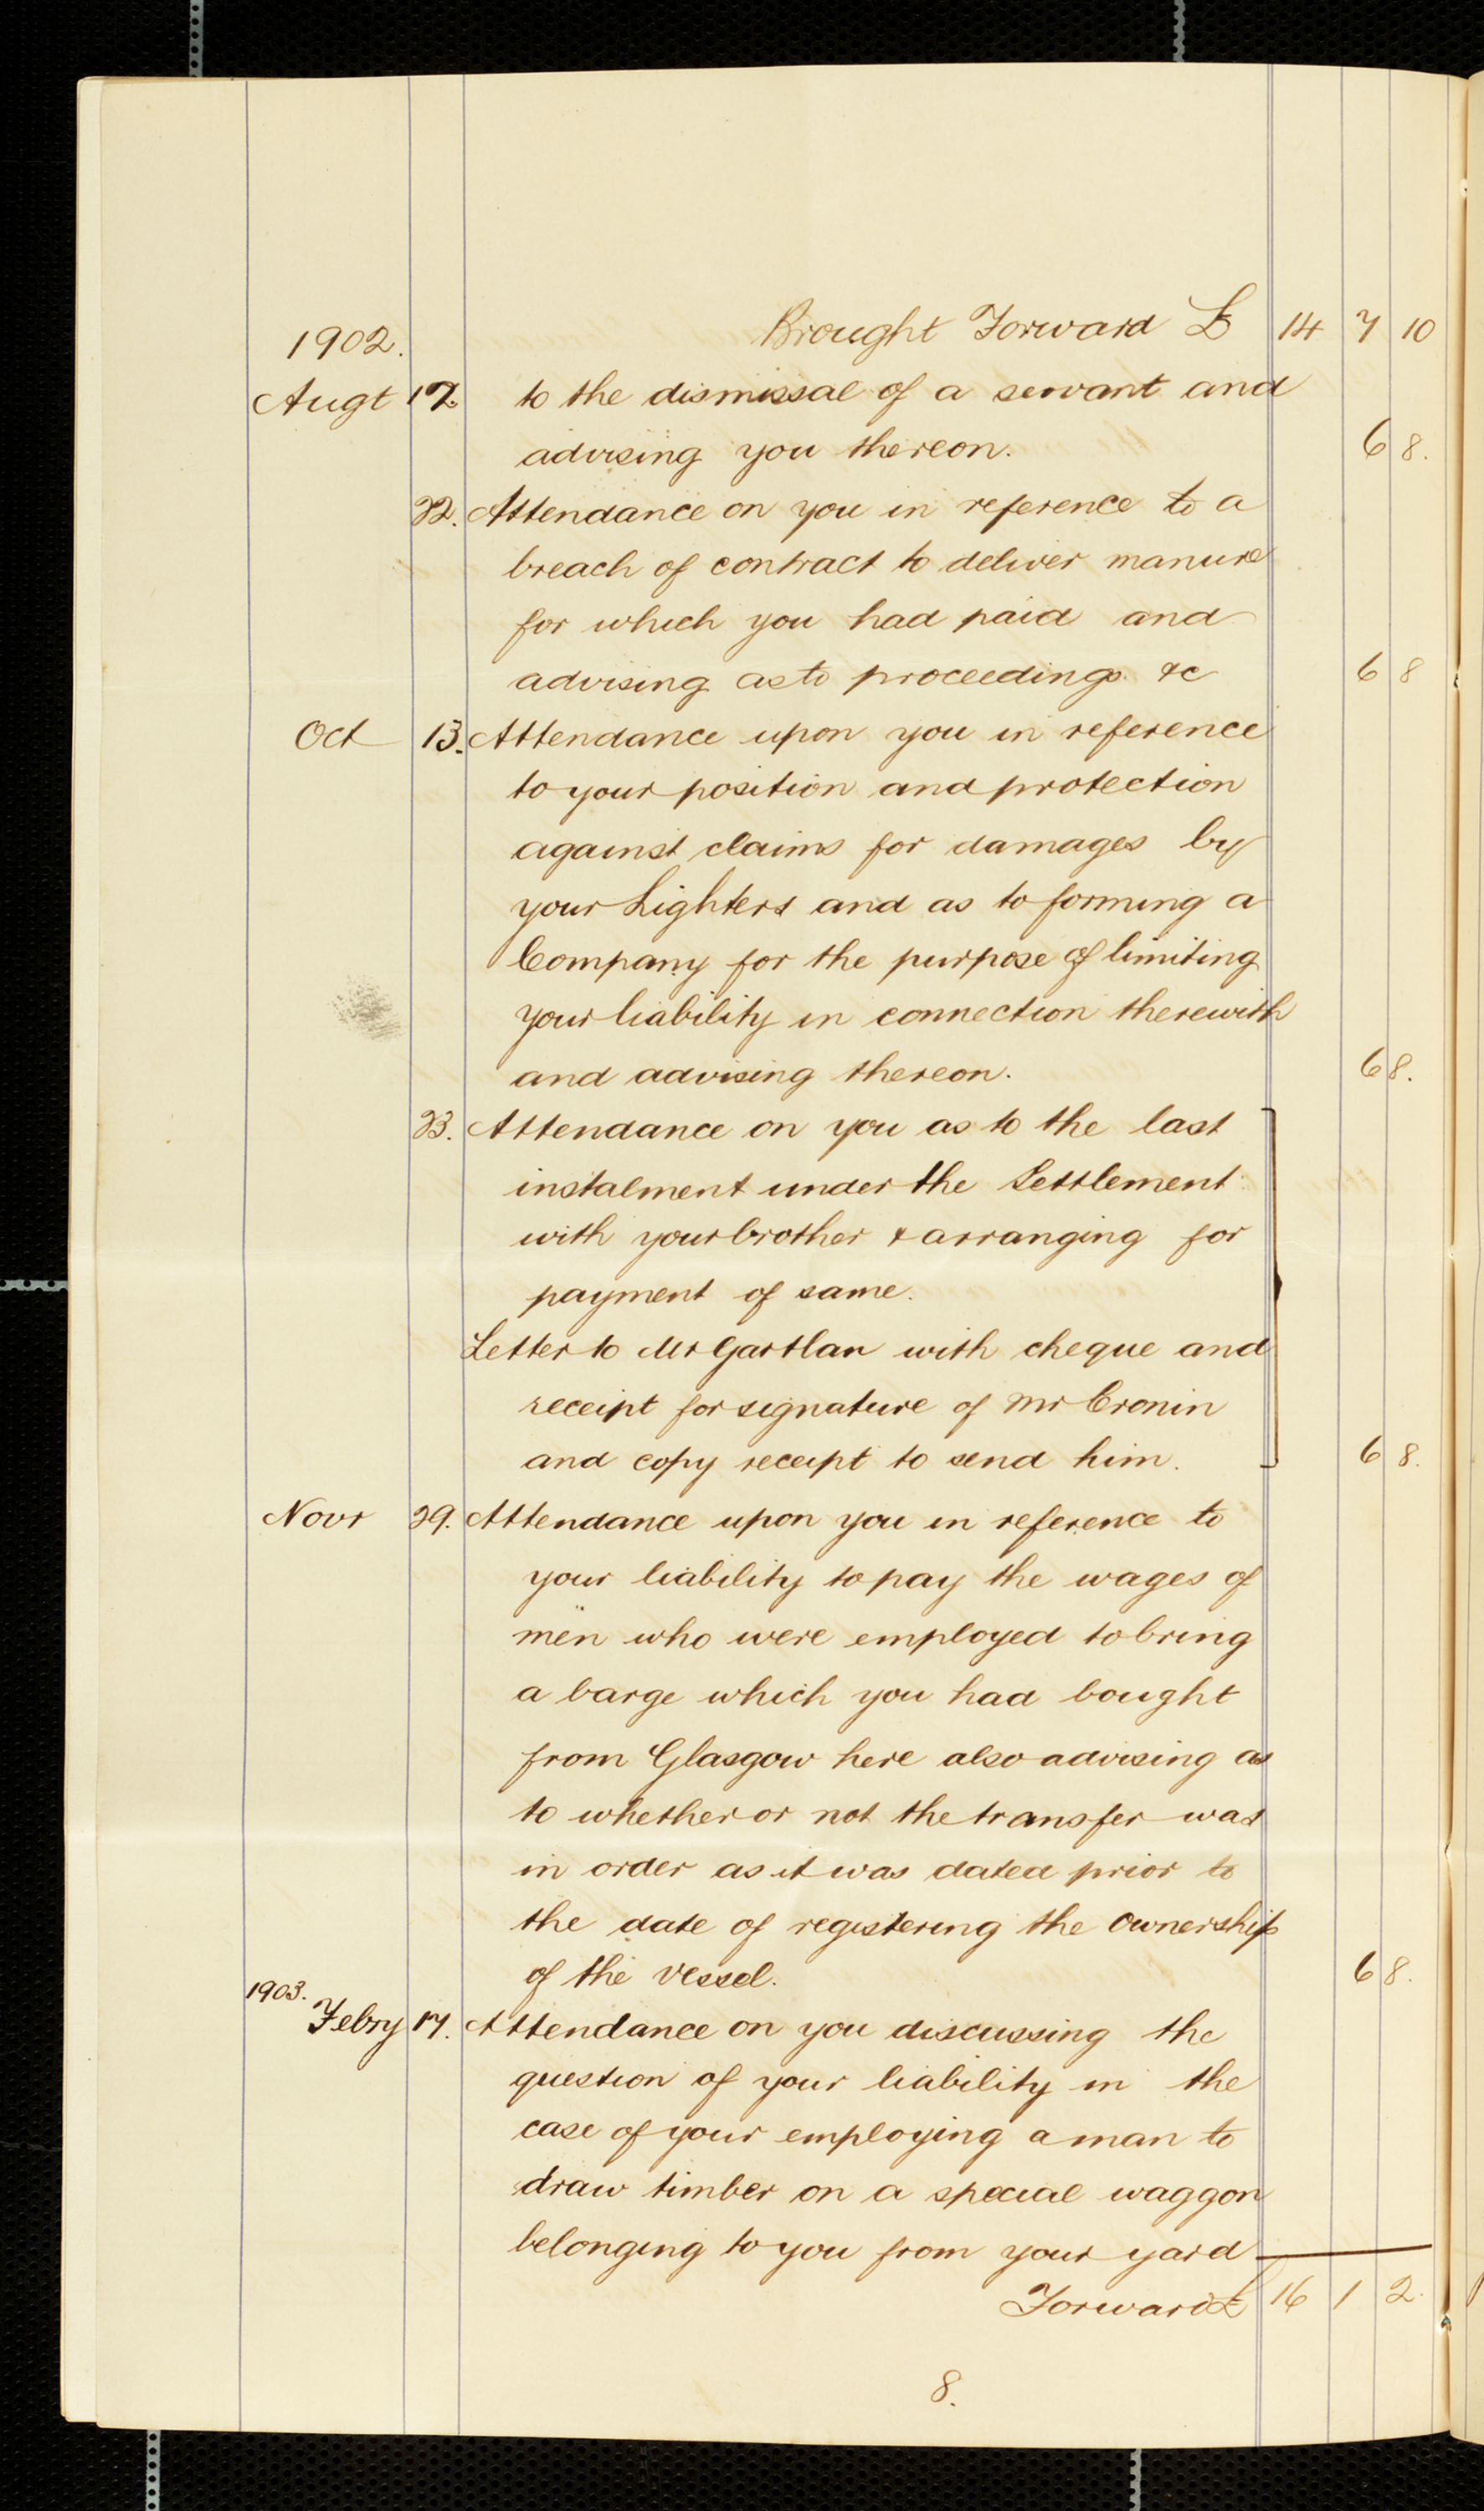 Brought Forward £ 14 7 10
1902.
Augt 17. to the dismissal of a servant and
advising you thereon. 6 8.
22. Attendance on you in reference to a
breach of contract to deliver manure
for which you had paid and
advising as to proceedings &c 6 8
Oct 13. Attendance upon you in reference
to your position and protection
against claims for damages by
your Lighters and as to forming a
Company for the purpose of limiting
your liability in connection therewith
and advising thereon. 6 8.
23. Attendance on you as to the last
instalment under the Settlement
with your brother & arranging for
payment of same.
Letter to Mr Gartlan with cheque and
receipt for signature of Mr Cronin
and copy receipt to send him. 6 8.
Novr 29. Attendance upon you in reference to
your liability to pay the wages of
men who were employed to bring
a barge which you had bought
from Glasgow here also advising as
to whether or not the transfer was
in order as it was dated prior to
the date of registering the Ownership
of the vessel. 6 8.
1903.
Febry 17. Attendance on you discussing the
question of your liability in the
case of your employing a man to
draw timber on a special waggon
belonging to you from your yard
Forward £ 16 1 2.
8.